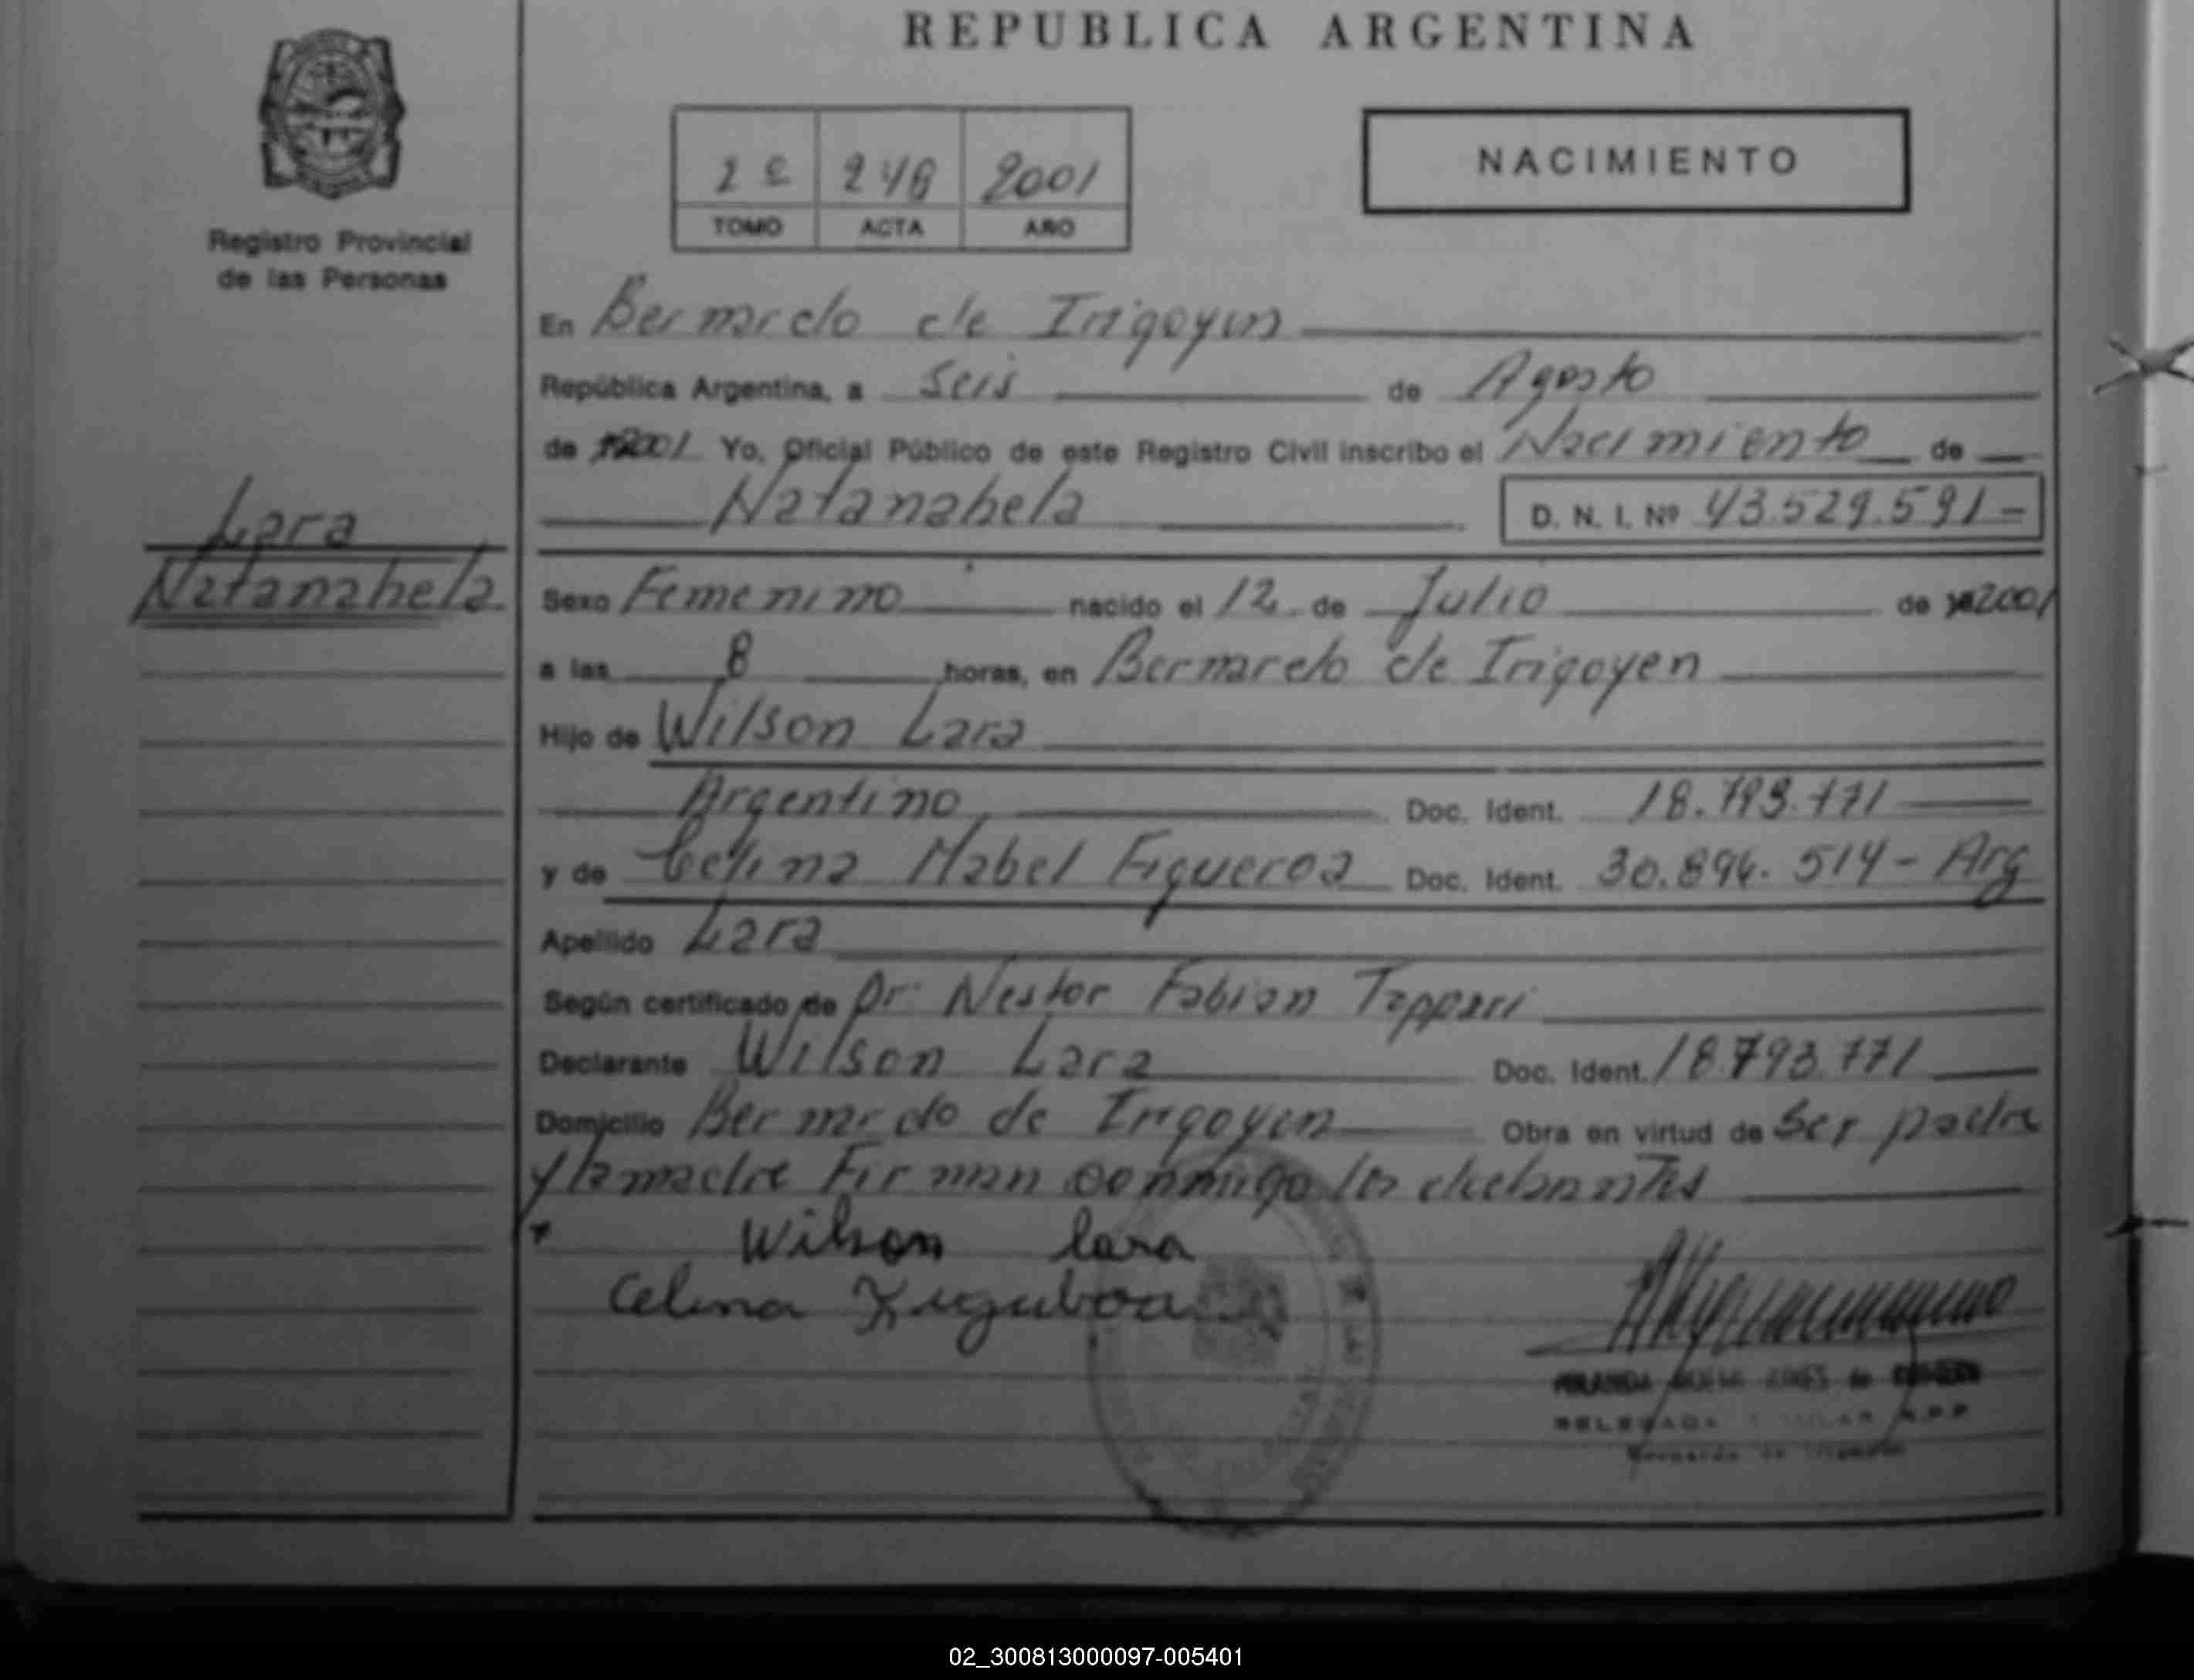 REPUBLICA ARGENTINA
Registro Provincial
de las Personas
2º 248 2001
TOMO ACTA AÑO
NACIMIENTO
En Bernardo de Irigoyen
República Argentina, a Seis de Agosto
de 2001 Yo, Oficial Público de este Registro Civil inscribo el Nacimiento de
Natanahela D. N. I. Nº 43.529.591-
Lara
Natanahela
Sexo Femenino nacido el 12 de Julio de 2001
a las 8 horas, en Bernardo de Irigoyen
Hijo de Wilson Lara
Argentino Doc. Ident. 18.793.771
y de Celina Mabel Figueroa Doc. Ident. 30.896.514- Arg
Apellido Lara
Según certificado de Dr Nestor Fabian Tappari
Declarante Wilson Lara Doc. Ident. 18.793.771
Domicilio Bernardo de Irigoyen Obra en virtud de Ser padre
y la madre Firman conmigo los
Wilson Lara
Celina
02_300813000097-005401